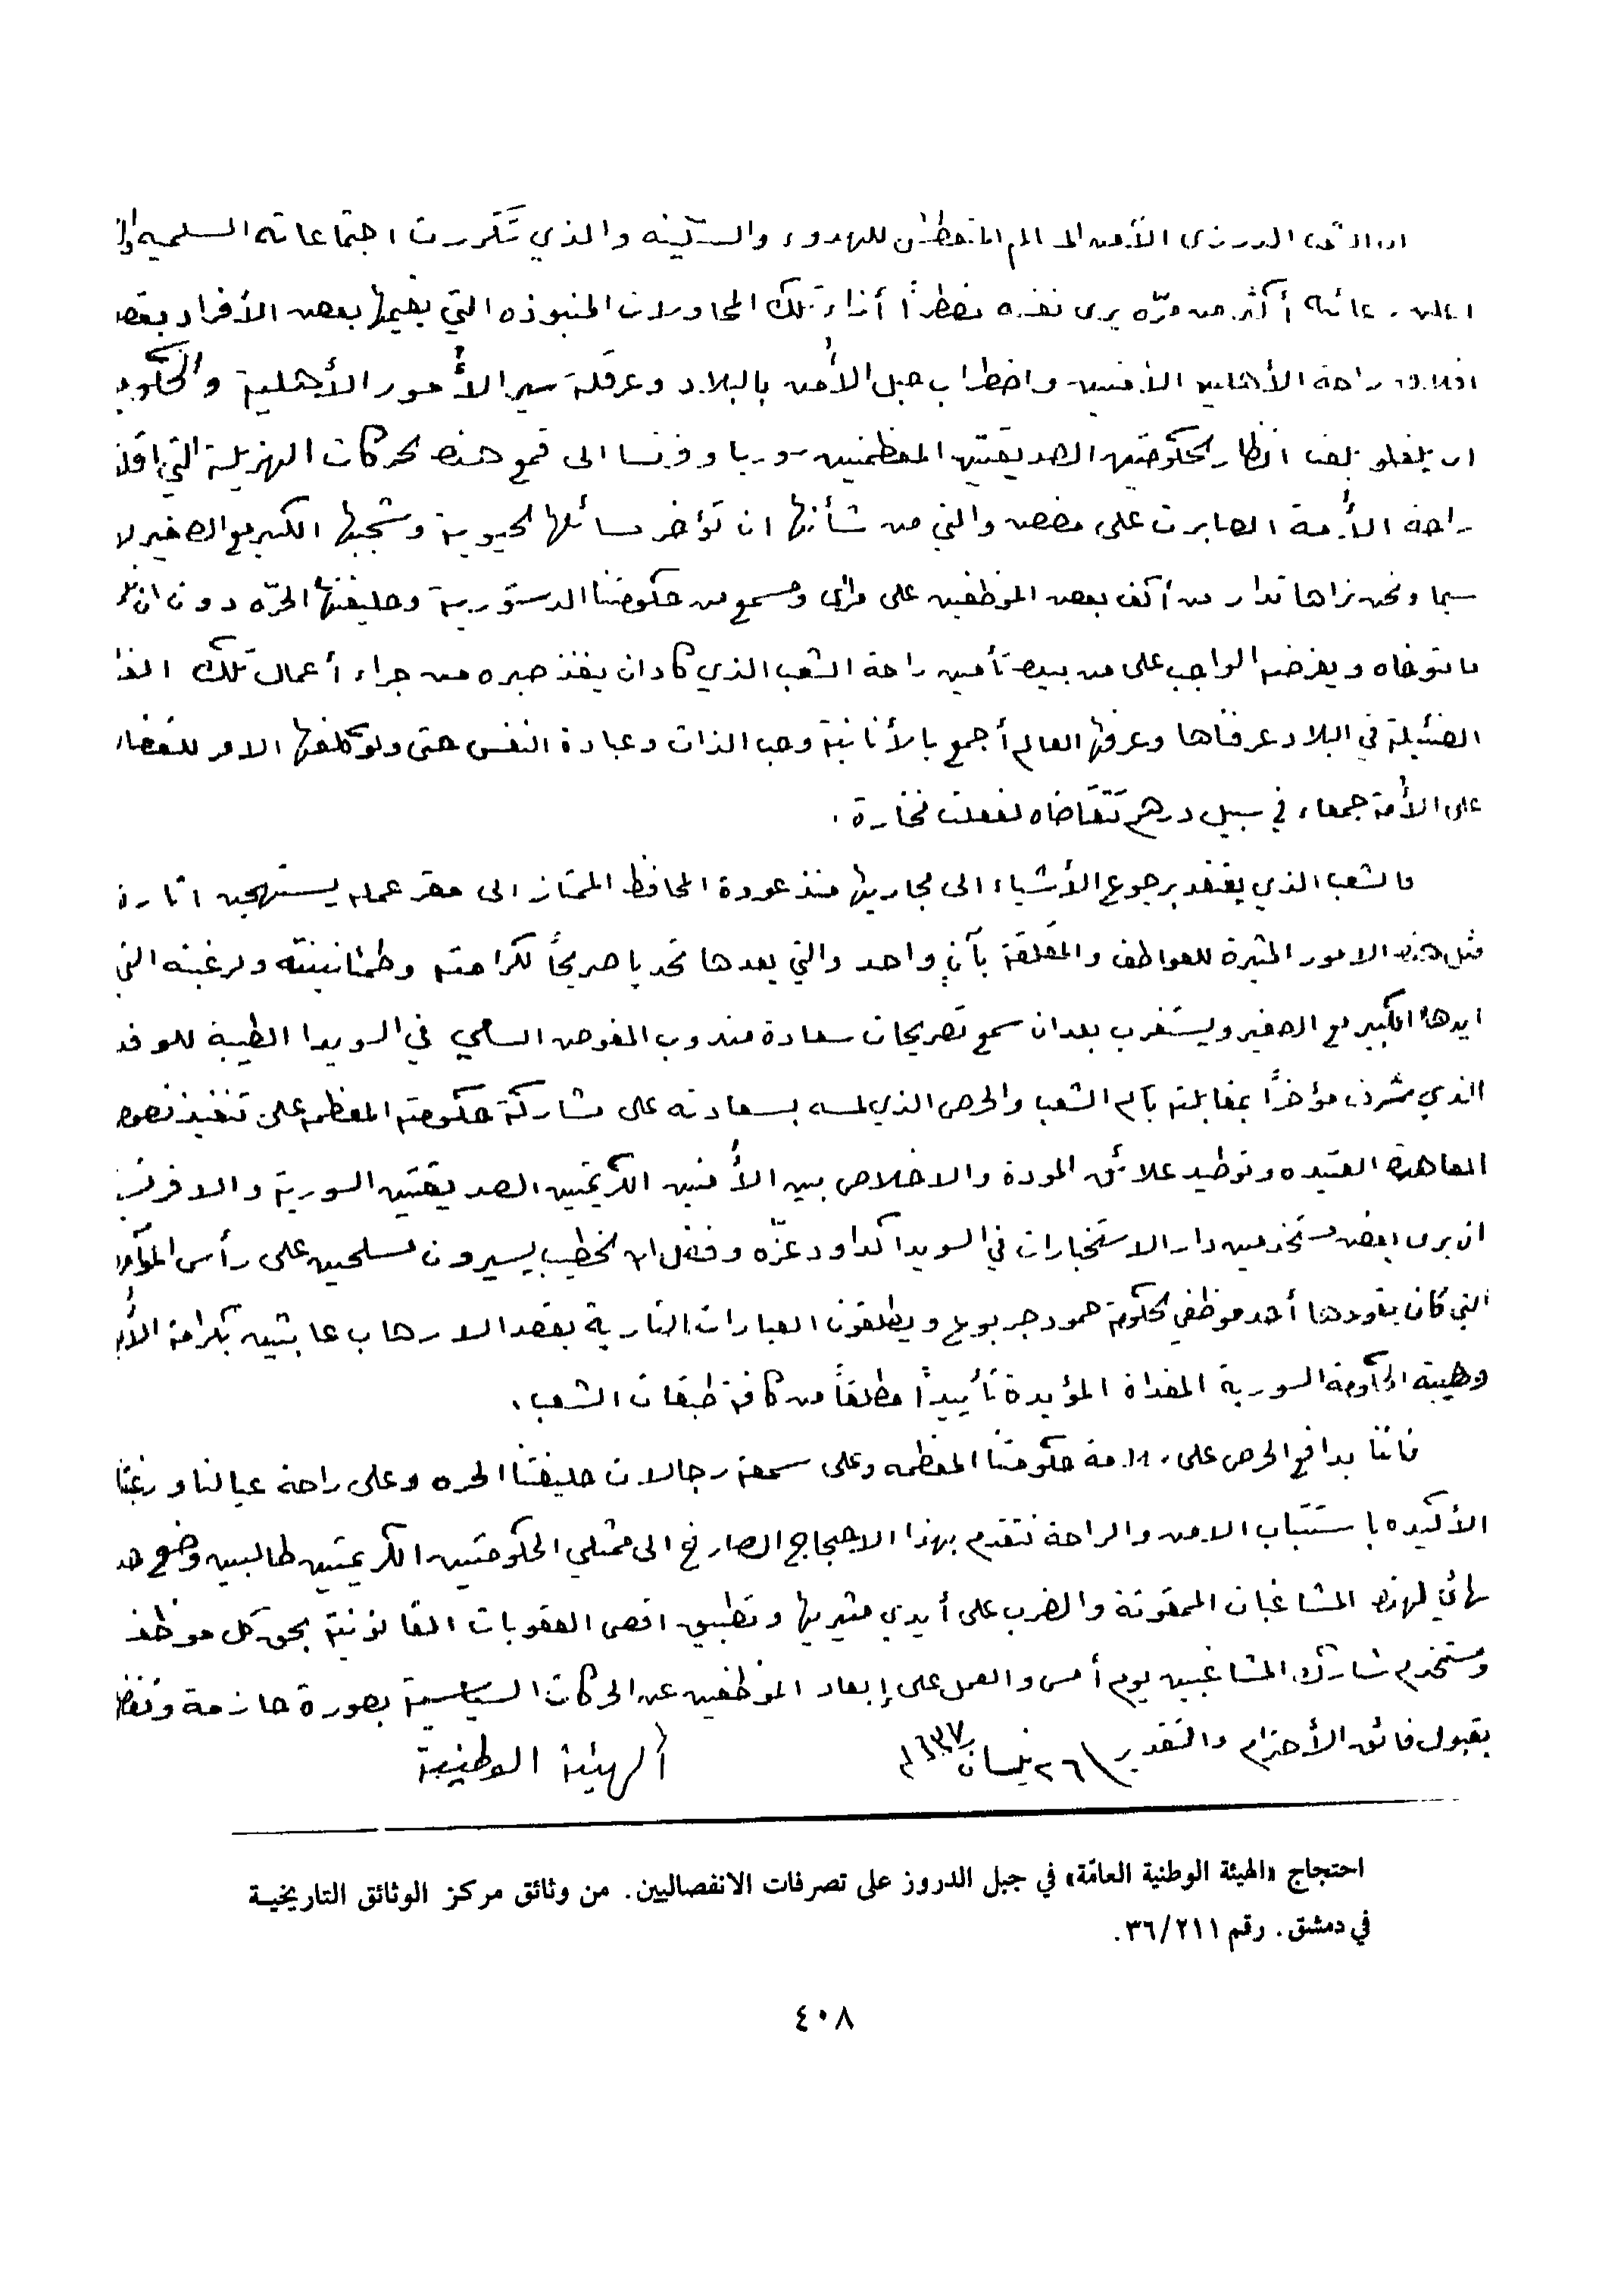 الدرزي الآمن المسالم المتعطش للهدوء والسكينه والذي تكررت اجتماعاته السلميه
أكثر من مرّه يرى نفسه مضطراً أزاء تلك المحاولات المنبوذه التي يقيمها بعض الأفراد بقصد
راحة الأهلين الآمنين واضطراب حبل الأمن بالبلاد وعرقلة سير الأمور الأهلية
ان يلفت انظار الحكومتين الصديقتين المعظمتين سوريا وفرنسا الى قمع هذه الحركات الهزيلة التي
راحة الأمة الصابرت على مضض والتي من شأنها ان تؤخر مسائلها الحيوية وشجبها الكبير مع الصغير لا
سيما ونحن نراها تدار من أكف بعض الموظفين على مرأى ومسمع من حكومتنا الدستورية وحليفتها الحرّه دون ان
ما نتوخاه ويفرضه الواجب على من بيده تأمين راحة الشعب الذي كاد ان ينفذ صبره من جراء أعمال تلك
الضئيلة في البلاد عرفناها وعرفها العالم أجمع بالأنانية وحب الذات وعبادة النفس حتى ولو كلفها الامر للقضاء
على الأمة جمعاء في سبيل درهم تتقاضاه لفعلت مختارة .
فالشعب الذي يعتقد برجوع الأشياء الى مجاريها منذ عودة المحافظ الممتاز الى مقر عمله يستهجن اثارة
مثل هذه الامور المثيرة للعواطف والمقلقة بآنٍ واحد والتي يعدها تحديا صريحاً لكرامته وطمئانينته ولرغبته التي
ايدها الكبير مع الصغير ويستغرب بعد ان سمع تصريحات سعادة مندوب المفوض السامي في السويدا الطيبة للوفد
الذي تشرف مؤخراً بمقابلته بآسم الشعب والحرص الذي لمسه بسعادته على مشاركة حكومته المعظمه على تنفيذ نصوص
المعاهدة العتيده وتوطيد علائق المودة والاخلاص بين الأمتين الكريمتين الصديقتين السورية والافرنسية
ان يرى بعض مستخدمين دار الاستخبارات في السويدا كداود عزّه وفضل الله الخطيب يسيرون مسلحين على رأس المؤآمرة
التي كان يقودها أحد موظفي الحكومة حمود جربوع ويطلقون العيارات النارية بقصد الارهاب عابثين بكرامة الأمة
وهيبة الحكومة السورية المفداة المؤيدة تأييداً مطلقاً من كافة طبقات الشعب .
فاننا بدافع الحرص على كرامة حكومتنا المعظمه وعلى سمعة رجالات حليفتنا الحره وعلى راحة عيالنا ورغبتنا
الأكيده باستتباب الامن والراحة نتقدم بهذا الاحتجاج الصارخ الى ممثلي الحكومتين الكريمتين طالبين وضع حد
نهائي لهذه المشاغبات الممقوتة والضرب على أيدي مثيريها وتطبيق اقصى العقوبات القانونية بحق كل موظف
ومستخدم شارك المشاغبين يوم أمس والعمل على إبعاد الموظفين عن الحركات السياسية بصورة حازمة
بقبول فائق الأحترام والتقدير ٢٦ نيسان ١٩٣٧
ألهيئة الوطنية
احتجاج «الهيئة الوطنية العامّة» في جبل الدروز على تصرفات الانفصاليين. من وثائق مركز الوثائق التاريخية
في دمشق. رقم ٣٦/٢١١.
٤٠٨